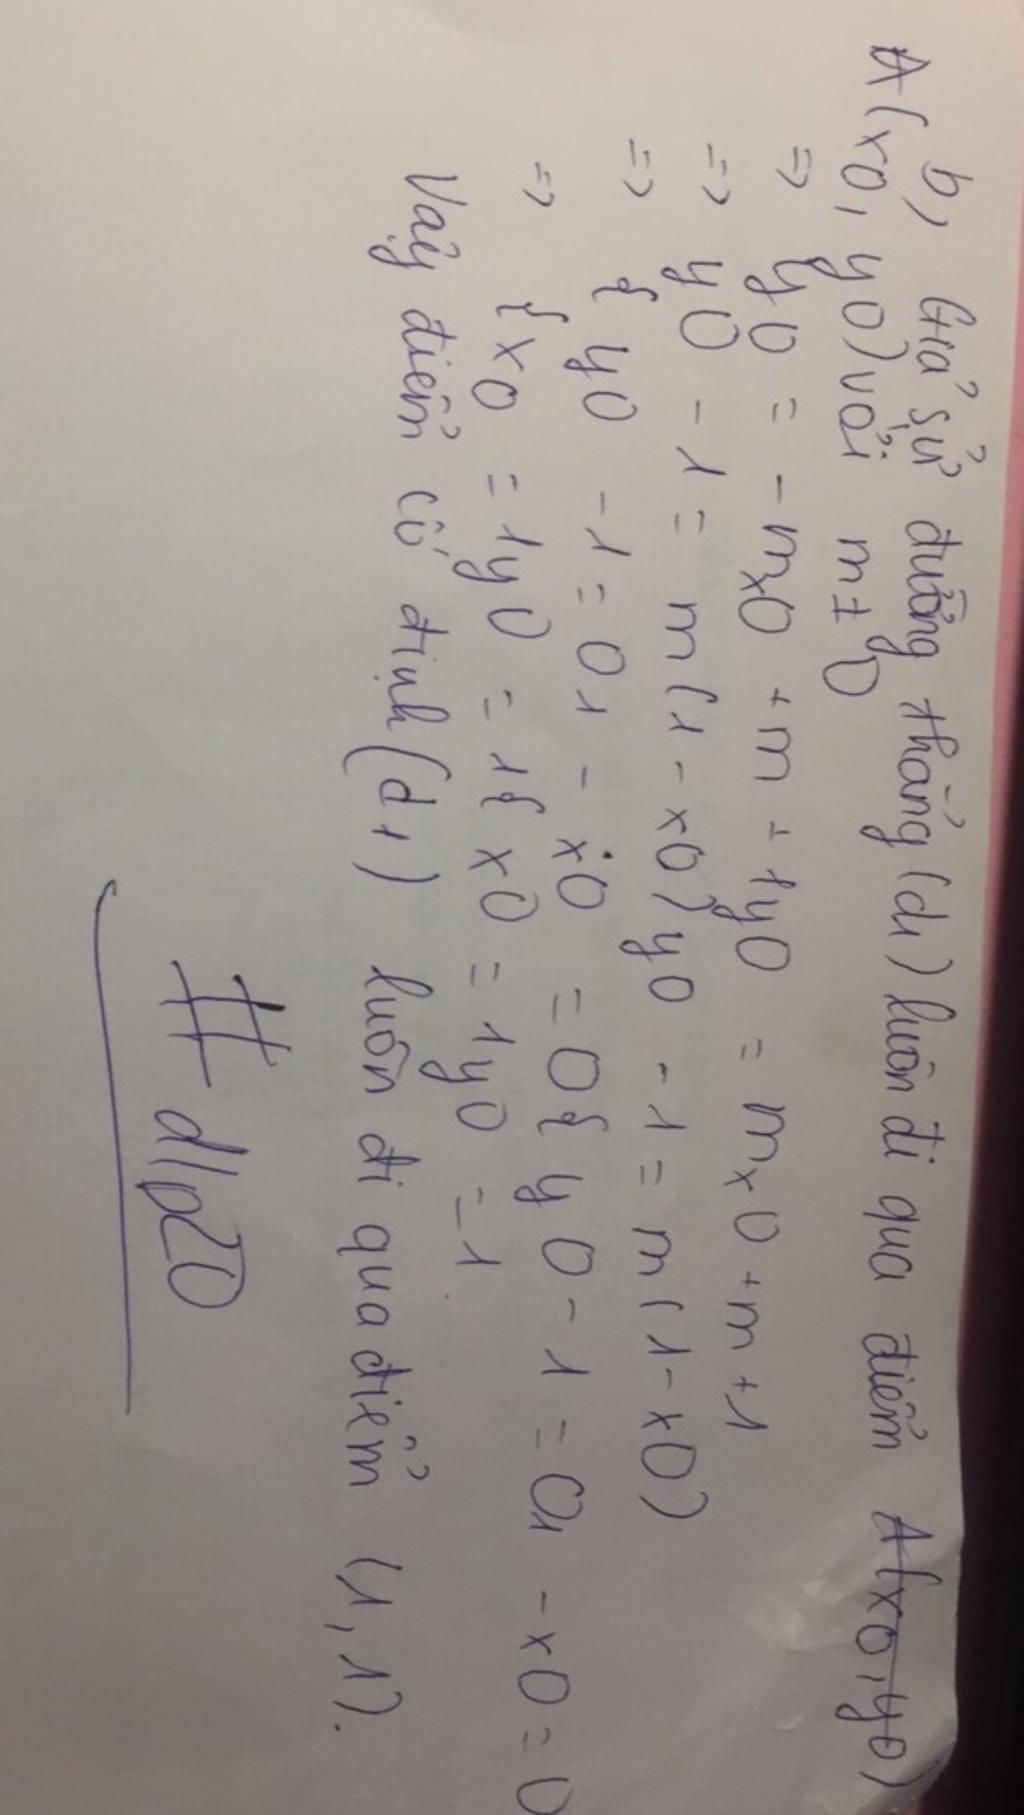 b, Giả sử đường thẳng (d1) luôn đi qua điểm A(x0, y0)
A(x0, y0) với m ≠ 0
=> y0 = -mx0 + m + 1y0 = mx0 + m + 1
=> y0 - 1 = m(1 - x0)y0 - 1 = m(1 - x0)
=> { y0 - 1 = 01 - x0 = 0{ y0 - 1 = 01 - x0 = 0
=> { x0 = 1y0 = 1{ x0 = 1y0 = 1
Vậy điểm cố định (d1) luôn đi qua điểm (1, 1).